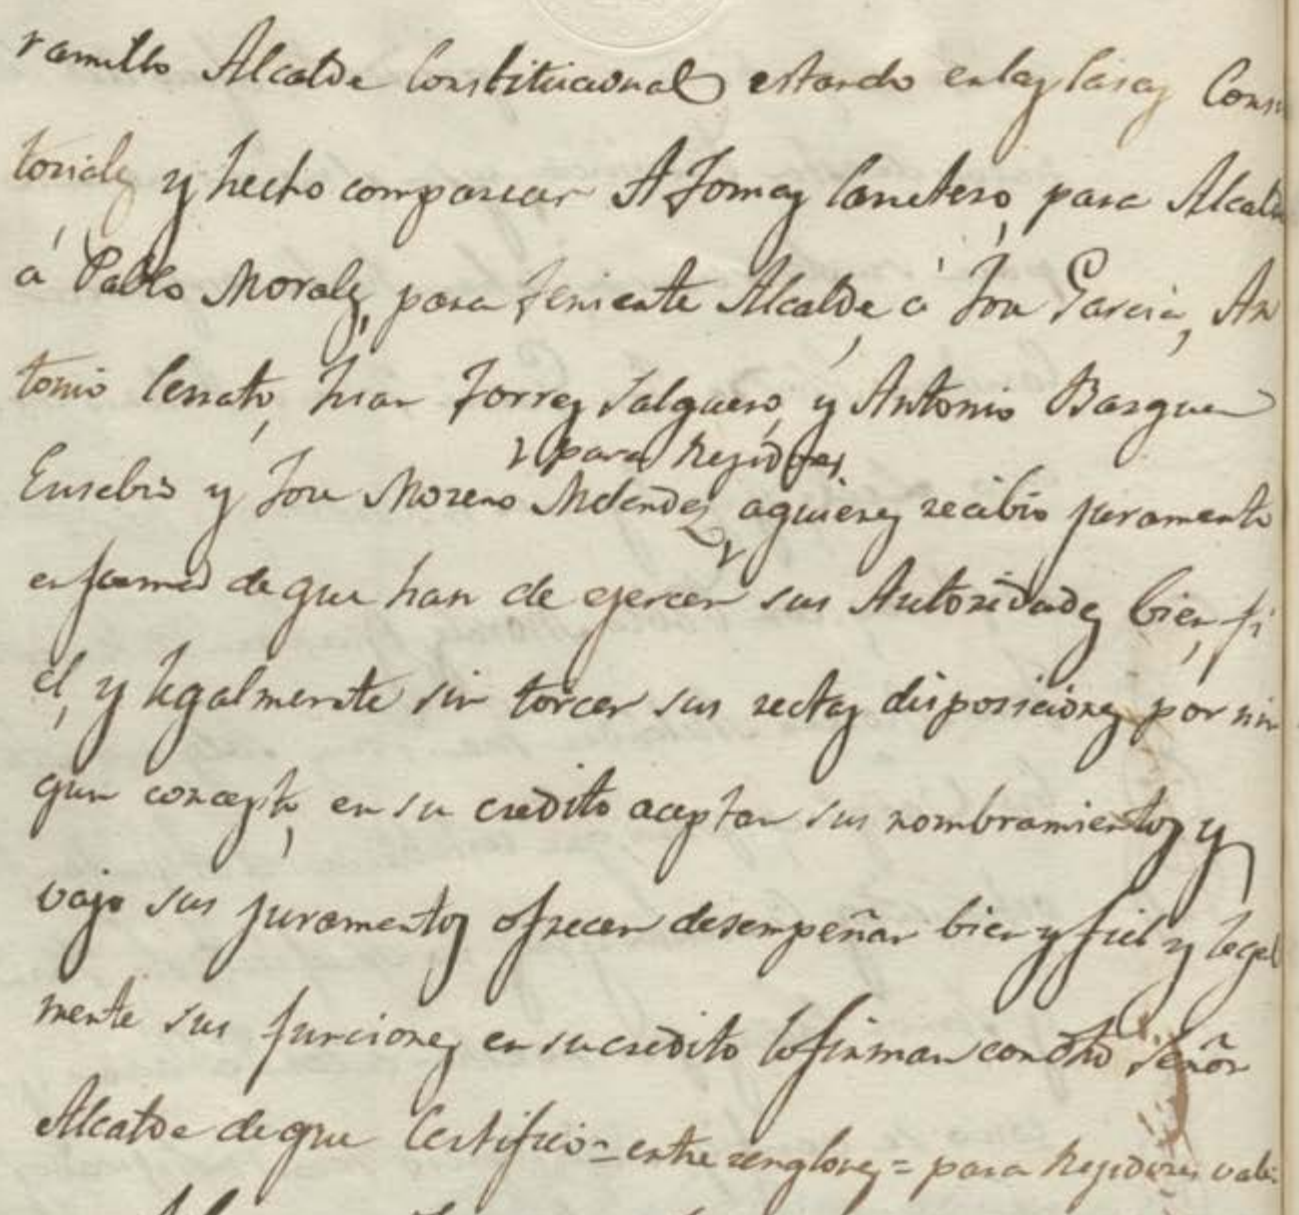 ramillo Alcalde Constitucional estando en las Casas Consis
toriales y hecho comparecer A Tomas Carretero, para Alcalde
á Pablo Morales, para Teniente Alcalde, á Jose Garcia, An
tonio Cerrato, Juan Torres Salguero, y Antonio Basquez
para Regidores
Eusebio y Jose Moreno Melendez, a quienes recibio juramento
en forma de que han de ejercer sus Autoridades bien, fi
el, y legalmente sin torcer sus rectas disposiciones por nin
gun concepto, en su credito aceptan sus nombramientos y
vajo sus juramentos ofrecen desempeñar bien y fiel y legal
mente sus funciones en su credito lo firman con dho Señor
Alcalde de que Certifico = entre renglones = para Regidores vale =